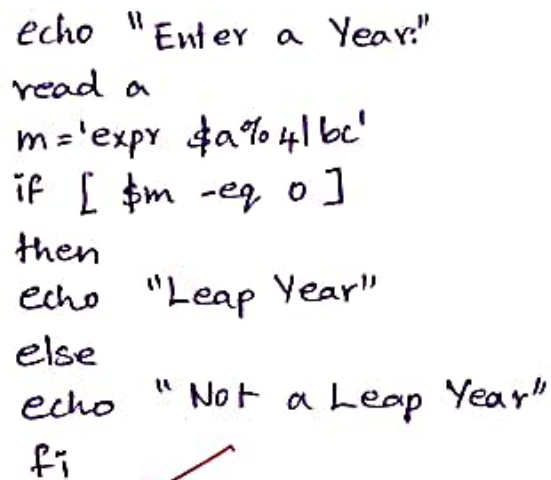 echo "Enter a Year:"
read a
m='expr $a%4|bc'
if [ $m -eq 0 ]
then
echo "Leap Year"
else
echo "Not a Leap Year"
fi